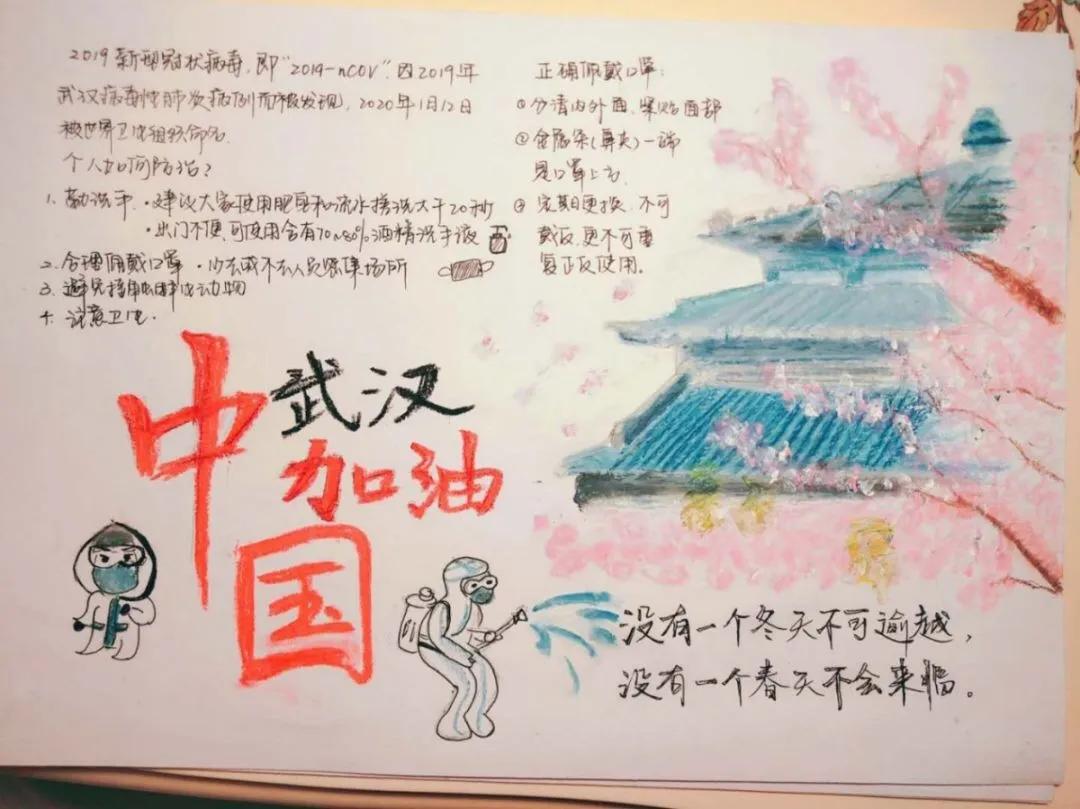 2019新型冠状病毒，即“2019-nCoV”.因2019年
武汉病毒性肺炎病例而被发现，2020年1月12日
被世界卫生组织命名.
个人如何防治？
1. 勤洗手 · 建议大家使用肥皂和流水搓洗大于20秒
· 出门不便，可使用含有70~80%酒精洗手液
2. 合理佩戴口罩 · 少去或不去人员密集场所
3. 避免接触野生动物
4. 注意卫生.
正确佩戴口罩：
① 分清内外面，紧贴面部
② 金属条(鼻夹)一端
是口罩上方.
③ 定期更换，不可
戴反，更不可重
复正反使用.
中国
武汉
加油
没有一个冬天不可逾越，
没有一个春天不会来临。